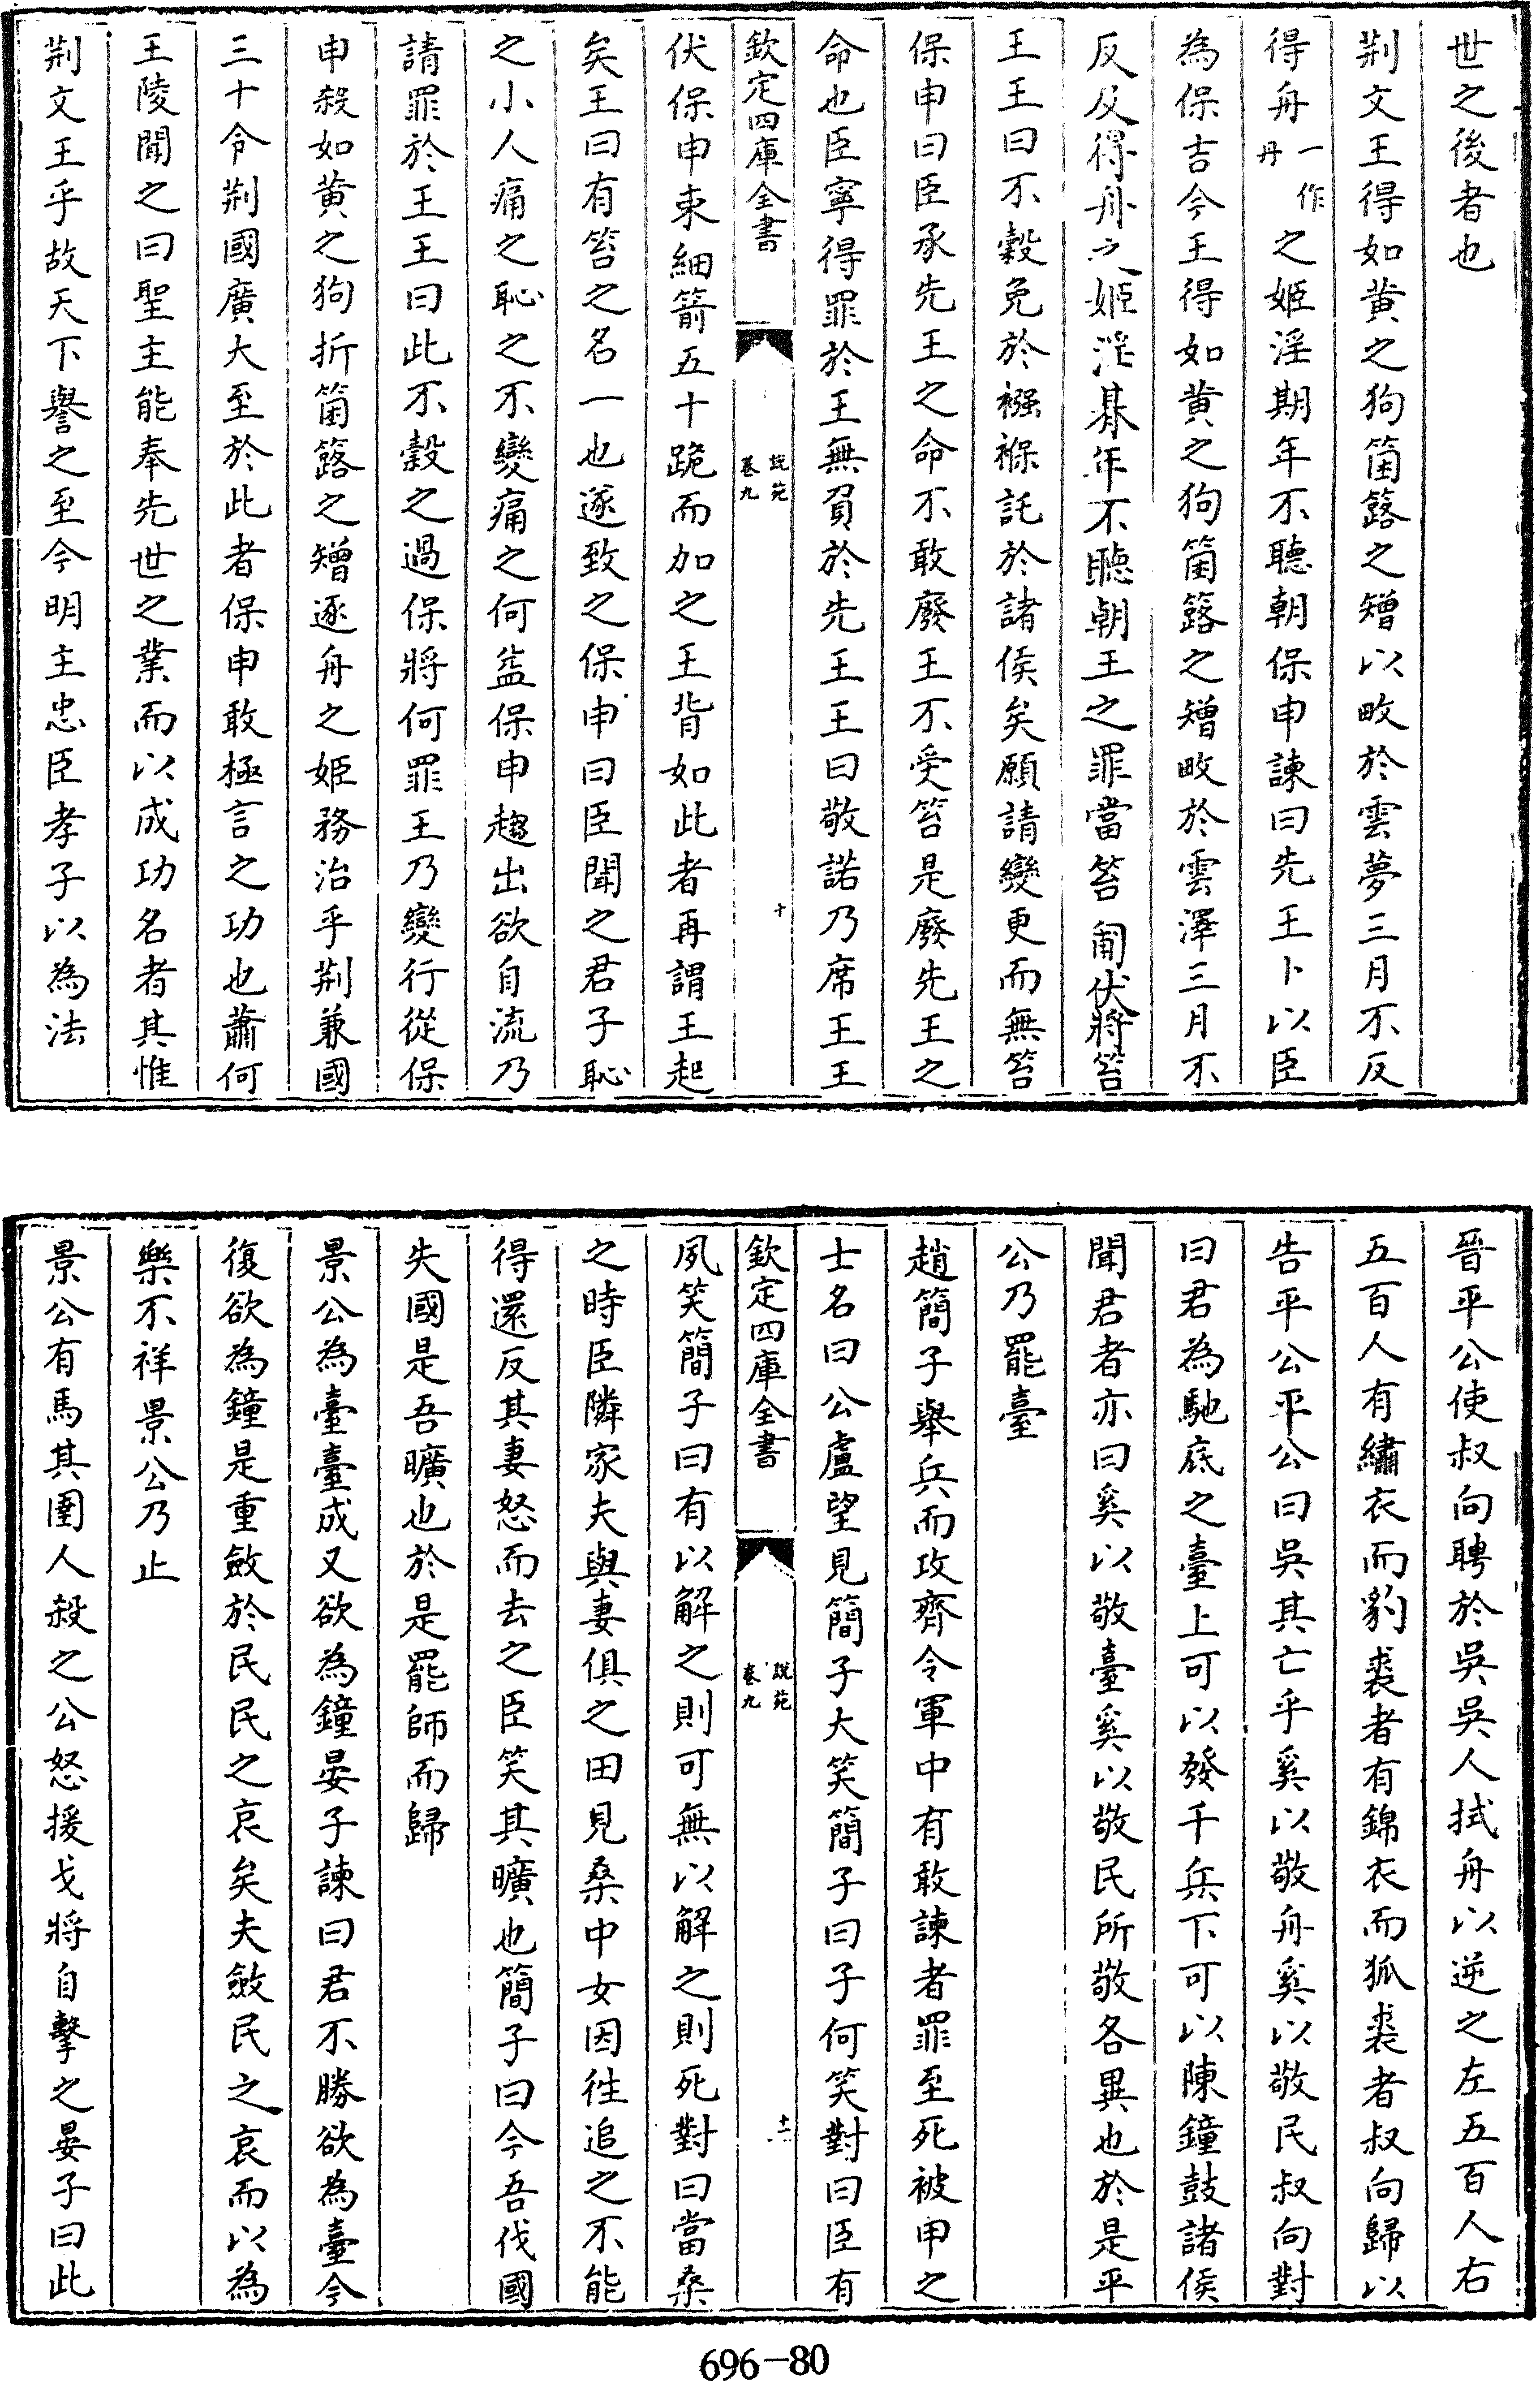 世之後者也
荆文王得如黄之狗箘簬之矰以畋於雲夢三月不反
得舟一作丹之姬淫期年不聽朝保申諫曰先王卜以臣
為保吉今王得如黄之狗箘簬之矰畋於雲澤三月不
反及得舟之姬淫朞年不聽朝王之罪當笞匍伏將笞
王王曰不穀免於襁褓託於諸侯矣願請變更而無笞
保申曰臣承先王之命不敢廢王不受笞是廢先王之
命也臣寧得罪於王無負於先王王曰敬諾乃席王王
欽定四庫全書
說苑
卷九
十
伏保申束細箭五十跪而加之王背如此者再謂王起
矣王曰有笞之名一也遂致之保申曰臣聞之君子恥
之小人痛之恥之不變痛之何益保申趨出欲自流乃
請罪於王王曰此不穀之過保將何罪王乃變行從保
申殺如黄之狗折箘簬之矰逐舟之姬務治乎荆兼國
三十令荆國廣大至於此者保申敢極言之功也蕭何
王陵聞之曰聖主能奉先世之業而以成功名者其惟
荆文王乎故天下譽之至今明主忠臣孝子以為法
晉平公使叔向聘於吳吳人拭舟以逆之左五百人右
五百人有繡衣而豹裘者有錦衣而狐裘者叔向歸以
告平公平公曰吳其亡乎奚以敬舟奚以敬民叔向對
曰君為馳底之臺上可以發千兵下可以陳鐘鼓諸侯
聞君者亦曰奚以敬臺奚以敬民所敬各異也於是平
公乃罷臺
趙簡子舉兵而攻齊令軍中有敢諫者罪至死被甲之
士名曰公盧望見簡子大笑簡子曰子何笑對曰臣有
欽定四庫全書
說苑
卷九
十一
夙笑簡子曰有以解之則可無以解之則死對曰當桑
之時臣隣家夫與妻俱之田見桑中女因徃追之不能
得還反其妻怒而去之臣笑其曠也簡子曰今吾伐國
失國是吾曠也於是罷師而歸
景公為臺臺成又欲為鐘晏子諫曰君不勝欲為臺今
復欲為鐘是重斂於民民之哀矣夫斂民之哀而以為
樂不祥景公乃止
景公有馬其圉人殺之公怒援戈將自擊之晏子曰此
696-80